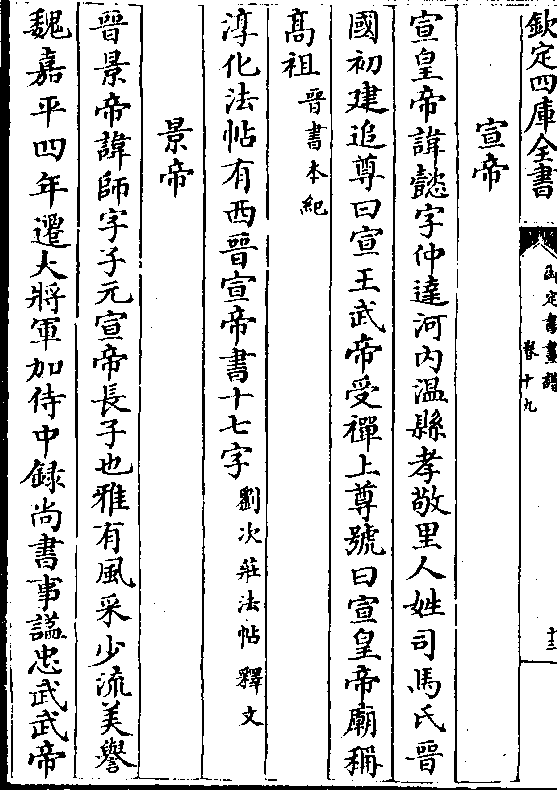 欽定四庫全書
御定書畫譜
卷十九
十三
宣帝
宣皇帝諱懿字仲達河内温縣孝敬里人姓司馬氏晉
國初建追尊曰宣王武帝受禪上尊號曰宣皇帝廟稱
髙祖晉書本紀
淳化法帖有西晉宣帝書十七字劉次莊法帖釋文
景帝
晉景帝諱師字子元宣帝長子也雅有風采少流美譽
魏嘉平四年遷大將軍加侍中録尚書事諡忠武武帝